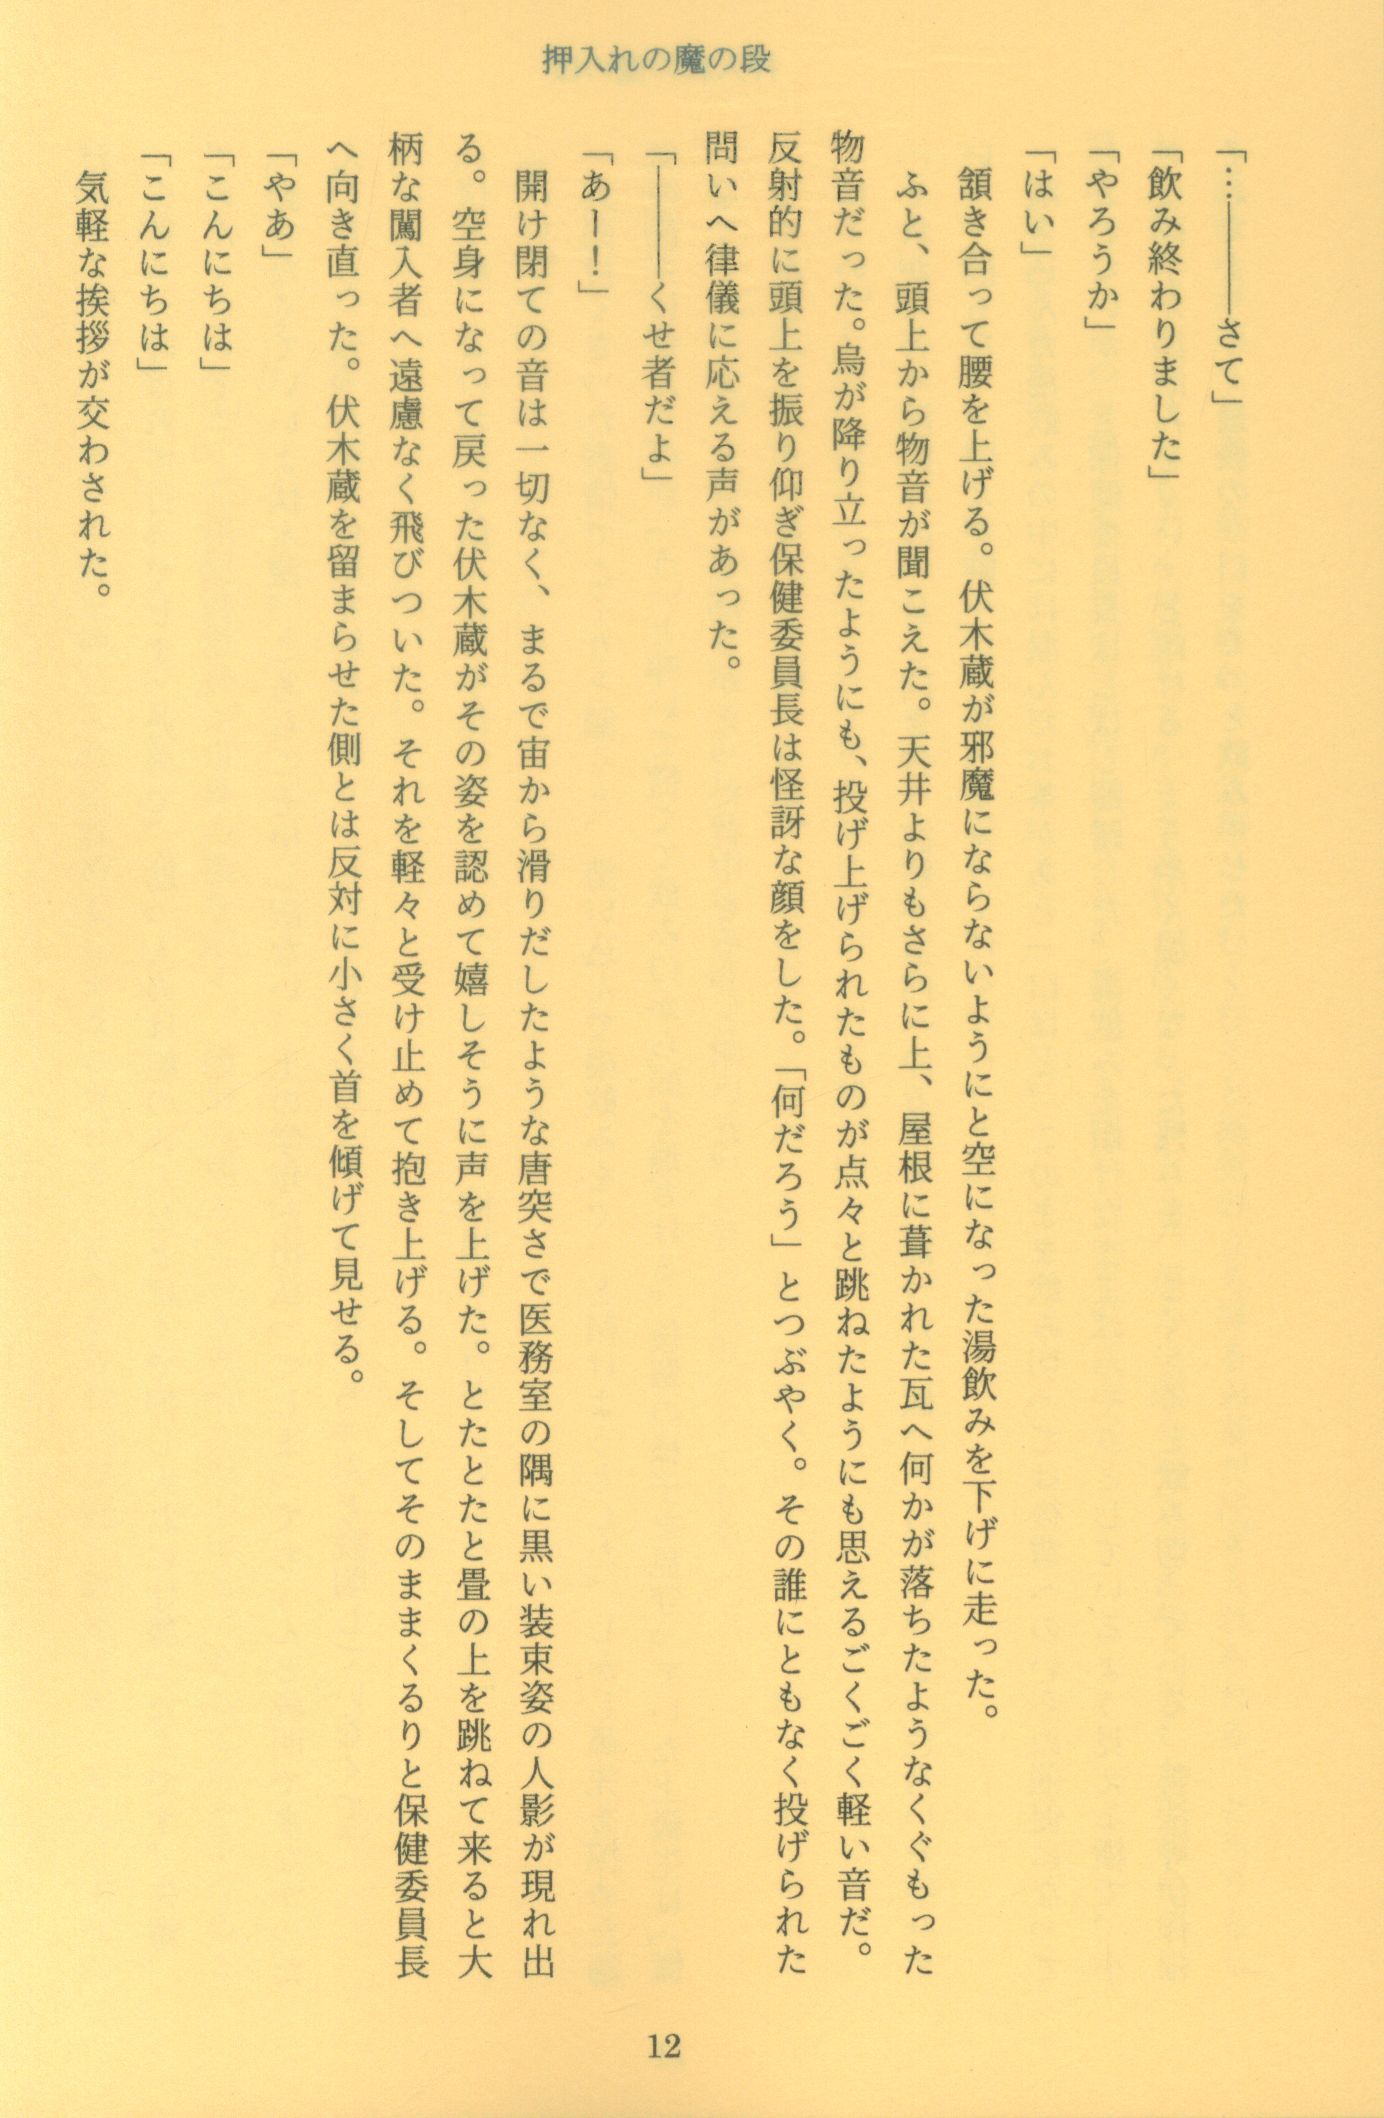 押入れの魔の段
「…――――さて」
「飲み終わりました」
「やろうか」
「はい」
　頷き合って腰を上げる。伏木蔵が邪魔にならないようにと空になった湯飲みを下げに走った。
　ふと、頭上から物音が聞こえた。天井よりもさらに上、屋根に葺かれた瓦へ何かが落ちたようなくぐもった
物音だった。烏が降り立ったようにも、投げ上げられたものが点々と跳ねたようにも思えるごくごく軽い音だ。
反射的に頭上を振り仰ぎ保健委員長は怪訝な顔をした。「何だろう」とつぶやく。その誰にともなく投げられた
問いへ律儀に応える声があった。
「――――くせ者だよ」
「あー！」
　開け閉ての音は一切なく、まるで宙から滑りだしたような唐突さで医務室の隅に黒い装束姿の人影が現れ出
る。空身になって戻った伏木蔵がその姿を認めて嬉しそうに声を上げた。とたとたと畳の上を跳ねて来ると大
柄な闖入者へ遠慮なく飛びついた。それを軽々と受け止めて抱き上げる。そしてそのままくるりと保健委員長
へ向き直った。伏木蔵を留まらせた側とは反対に小さく首を傾げて見せる。
「やあ」
「こんにちは」
「こんにちは」
　気軽な挨拶が交わされた。
12